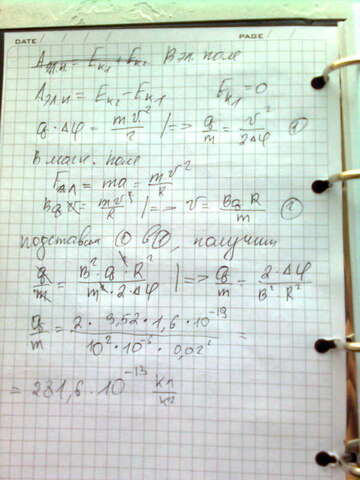 DATE PAGE
Aэл.п = Eк₁ + Eк₂ В эл. поле
Aэл.п = Eк₂ − Eк₁ Eк₁ = 0
q · Δφ = mv²/2 |=> q/m = v²/2Δφ ①
В магн. поле
Fл = ma = mv²/R
Bqv = mv²/R |=> v = BqR/m ②
подставим ② в ①, получим
q/m = B² · q² · R²/m² · 2Δφ |=> q/m = 2 · Δφ/B² · R²
q/m = 2 · 3,52 · 1,6 · 10⁻¹⁹/10² · 10⁻⁶ · 0,02² =
= 281,6 · 10⁻¹³ Кл/кг